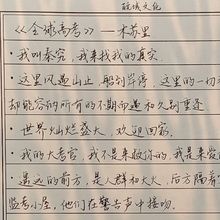 酷城文化
《全球高考》——木苏里
·我叫秦究,我来找我的真实.
·这里风遇山止,船到岸停,这里的一切
却能容纳所有的不期而遇和久别重逢
·世界灿烂盛大,欢迎回家.
·我的大考官,我不是来救你的,我是来爱
·遥远的前方,是人群和大火,后方隔着
监考小屋,他们在警告声中接吻.